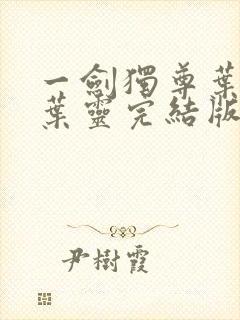 一劍獨尊葉
葉靈完結版
尹樹霞